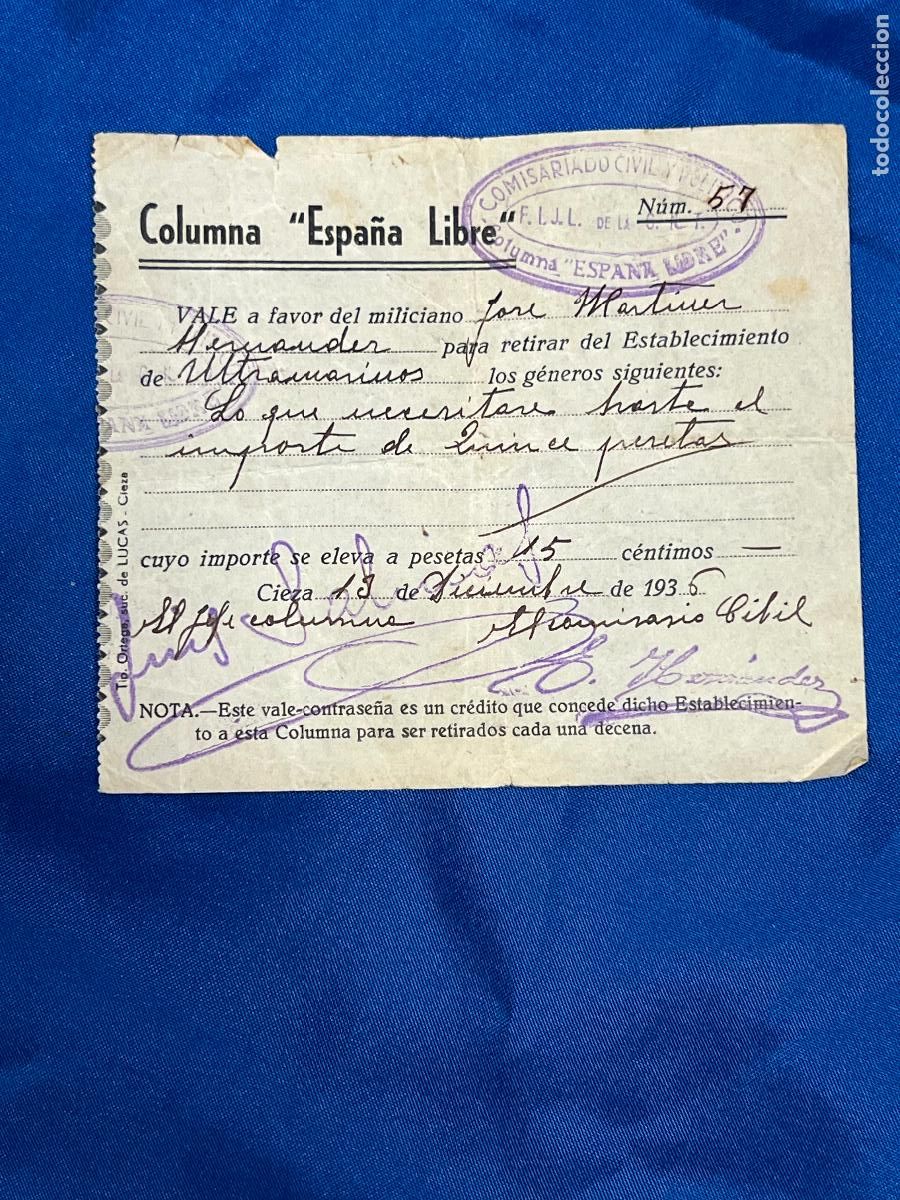 todocoleccion
COMISARIADO CIVIL Y POLITICO
F.I.J.L. DE LA C.N.T.
Columna "ESPAÑA LIBRE"
Núm. 57
Columna "España Libre"
VALE a favor del miliciano Jose Martinez
Hernandez para retirar del Establecimiento
de Ultramarinos los géneros siguientes:
Lo que necesitare haste el
importe de Quince pesetas
cuyo importe se eleva a pesetas 15 céntimos —
Cieza 13 de Diciembre de 1936
El Jefe columna El Comisario Cibil
E. Hernández
NOTA.—Este vale-contraseña es un crédito que concede dicho Establecimien-
to a esta Columna para ser retirados cada una decena.
Tip. Ortega, suc. de LUCAS - Cieza